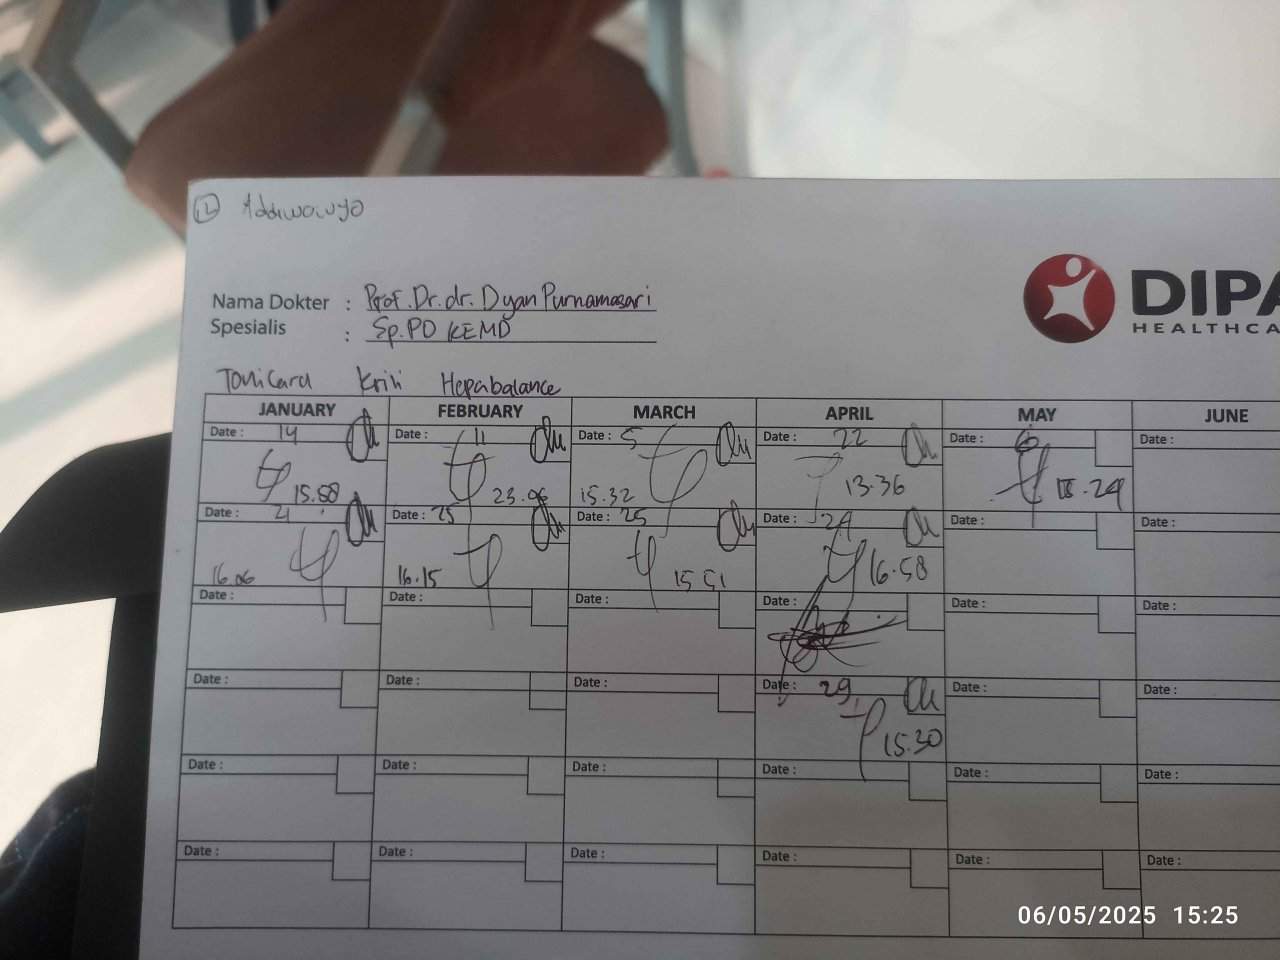 12 Addiwowyo
Nama Dokter : Prof. Dr. dr. Dyan Purnamasari
Spesialis : Sp.PD KEMD
DIPA
HEALTHCA
Kriii Hepabalance
JANUARY FEBRUARY MARCH APRIL MAY JUNE
Date : 14 Date : 11 Date : 5 Date : 22 Date : 6 Date :
15.58 15.32 13.36
Date : 21 Date : 25 Date : 25 Date : Date : Date :
16.06 16.15 15.51 16.58
Date : Date : Date : Date : Date : Date :
Date : Date : Date : Date : 29 Date : Date :
15.30
Date : Date : Date : Date : Date : Date :
Date : Date : Date : Date : Date : Date :
06/05/2025 15:25